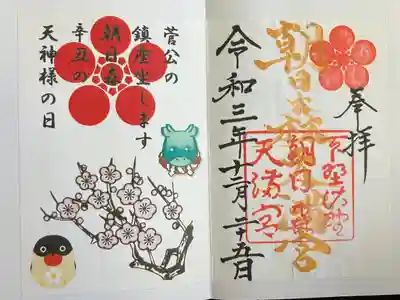 奉拝
朝日森天満宮
下野佐野の
朝日森
天満宮
令和三年十二月二十五日
菅公の
鎮座坐します
朝日森
辛丑の
天神様の日